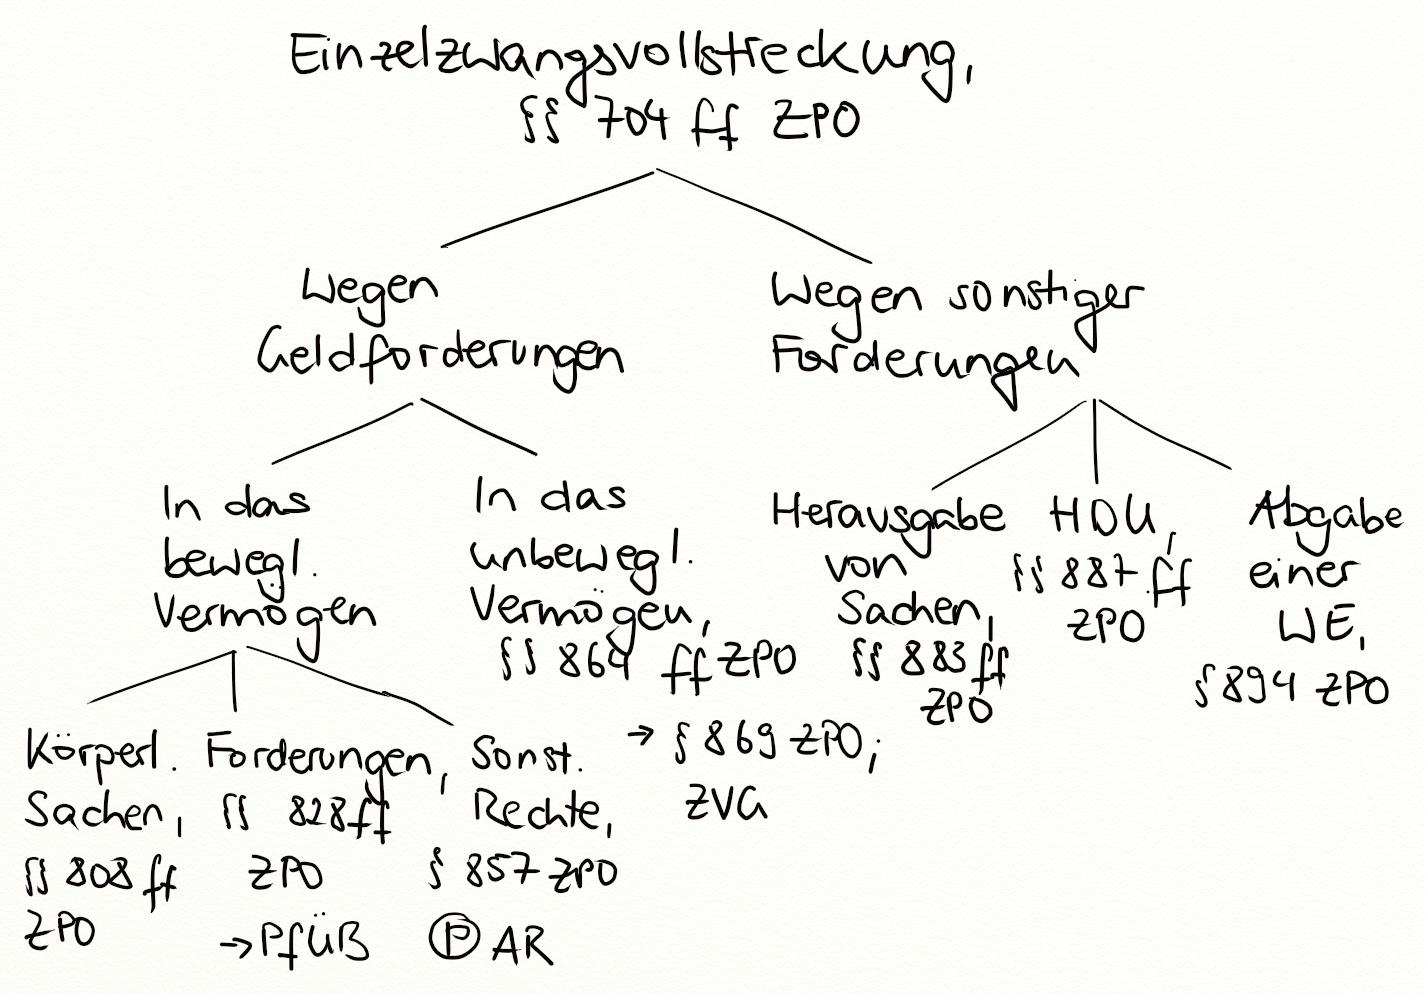 Einzelzwangsvollstreckung,
§§ 704 ff ZPO
Wegen
Geldforderungen
Wegen sonstiger
Forderungen
In das
bewegl.
Vermögen
In das
unbewegl.
Vermögen,
§§ 864 ff ZPO
→ § 869 ZPO;
ZVG
Herausgabe
von
Sachen,
§§ 883 ff
ZPO
HDU,
§§ 887 ff
ZPO
Abgabe
einer
WE,
§ 894 ZPO
Körperl.
Sachen,
§§ 808 ff
ZPO
Forderungen,
§§ 828 ff
ZPO
→ PfÜB
Sonst.
Rechte,
§ 857 ZPO
Ⓟ AR